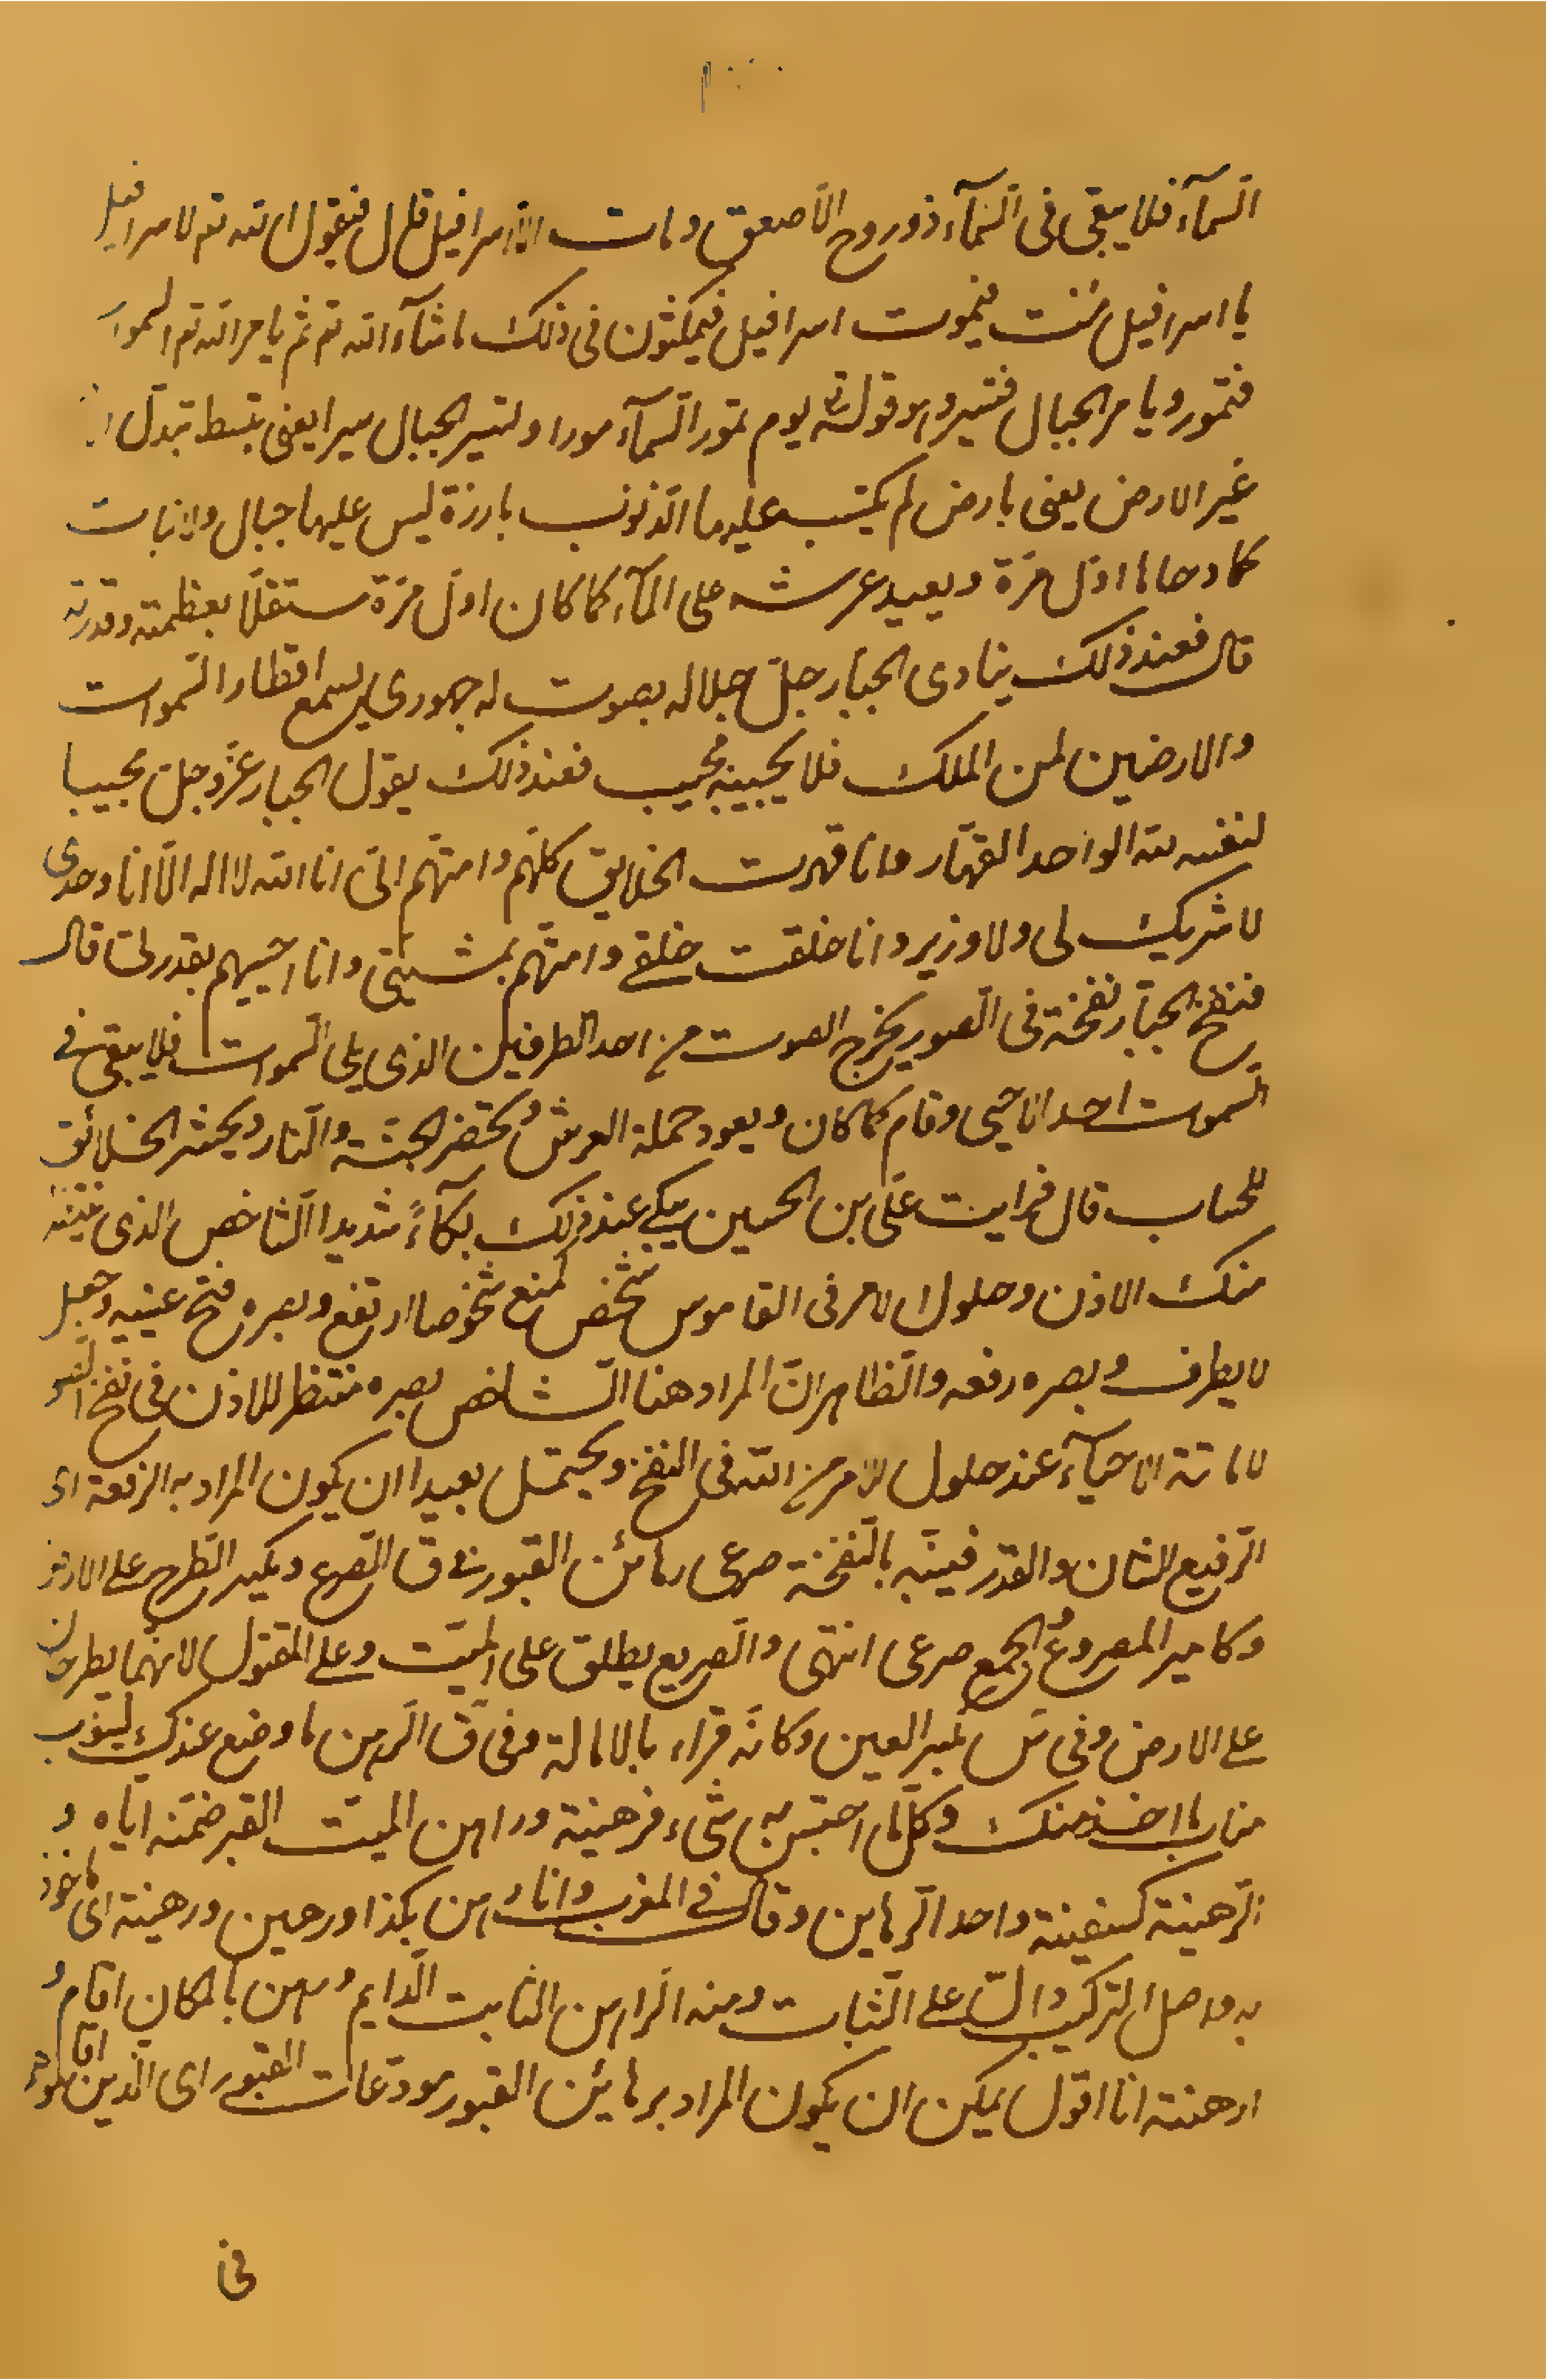 السمآء فلا يبقى فى السمآء ذو روح الا صعق ومات الا اسرافيل قال فيقول الله تع لاسرافيل
يا اسرافيل مُت فيموت اسرافيل فيمكثون فى ذلك ما شآء الله تع ثم يامر الله تع السموات
فتمور ويامر الجبال فتسير وهو قوله تع يوم تمور السمآء مورا وتسير الجبال سيرا يعنى تبسط تبدل
غير الارض يعنى بارض لم يكتسب عليها الذنوب بارزة ليس عليها جبال ولا نبات
كما دحاها اول مرة ويعيد عرشه على المآء كما كان اول مرة مستقلا بعظمته وقدرته
قال فعند ذلك ينادى الجبار جل جلاله بصوت له جهوري يسمع اقطار السموات
والارضين لمن الملك فلا يجيبه مجيب فعند ذلك يقول الجبار عز وجل مجيبا
لنفسه لله الواحد القهار وانا قهرت الخلايق كلهم وامتهم انى انا الله لا اله الا انا وحدى
لا شريك لى ولا وزير وانا خلقت خلقي وامتهم بمشيتى وانا احييهم بقدرتى قال
فنفخ الجبار نفخة فى الصور يخرج الصوت من احد الطرفين الذى يلى السموات فلا يبقى في
السموات احد الا حيى وقام كما كان ويعود حملة العرش ويحضر الجنة والنار ويحشر الخلائق
للحساب قال فرايت على بن الحسين يبكي عند ذلك بكآءً شديدا الشاخص الذى ينتظر
منك الاذن وحلول الامر فى القاموس شخص كمنع شخوصا ارتفع وبصره فتح عينيه وجعل
لا يطرف وبصره رفعه والظاهر ان المراد هنا الشاخص بصره منتظرا للاذن فى نفخ الصور
لاماتة الاحيآء عند حلول الامر من الله فى النفخ ويحتمل بعيدا ان يكون المراد به الرفعة اى
الرفيع الشان والقدر فينبه بالنفخة صرعى رهائن القبور في ق الصرع ويكسر الطرح على الارض
وكامير المصروع الجمع صرعى انتهى والصريع يطلق على الميت وعلى المقتول لانهما يطرحان
على الارض وفى س بكسر العين وكانه قراء بالامالة وفى ق الرهن ما وضع عندك لينوب
مناب ما اخذ منك وكل ما احتبس به شىء فرهينة وراهن الميت القبر ضمنه اياه و
الرهينة كسفينة واحد الرهاين وقال في المغرب وانا رهن بكذا ورهين ورهينة اى ماخوذ
به واصل التركيب دال على الثبات ومنه الراهن الثابت الدايم ورهن بالمكان اقام و
ارهنته انا اقول يمكن ان يكون المراد برهائن القبور مودعات القبور اى الذين اقاموا
فى